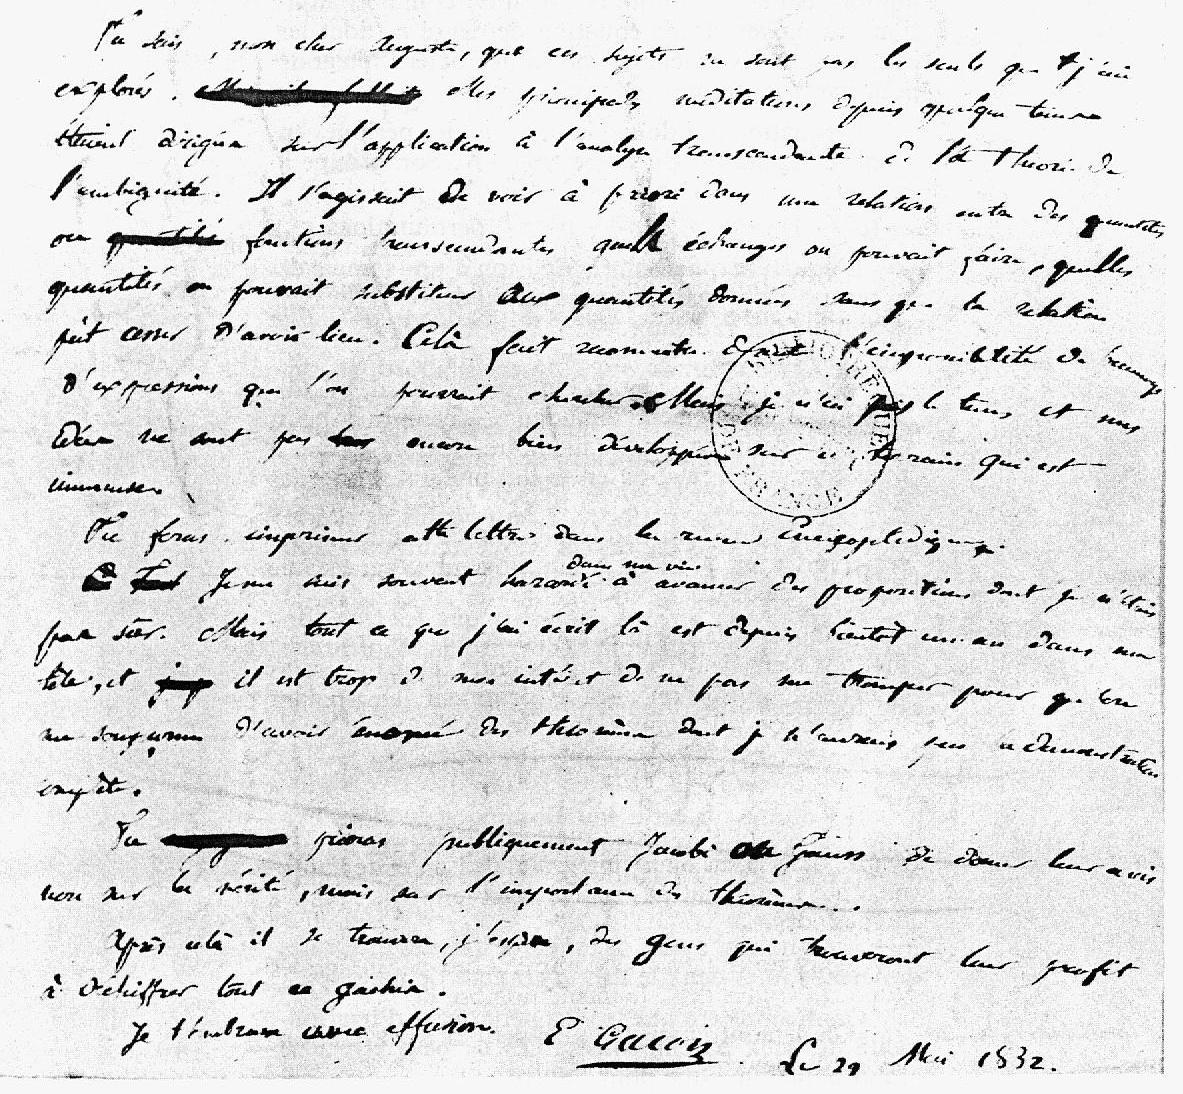 Tu sais, mon cher Auguste, que ces sujets ne sont pas les seuls que j'aie
explorés. Mes principales méditations depuis quelque tems
étaient dirigées sur l'application à l'analyse transcendante de la théorie de
l'ambiguité. Il s'agissait de voir à priori dans une relation entre des quantités
ou fonctions transcendantes quels échanges on pouvait faire, quelles
quantités on pouvait substituer aux quantités données sans que la relation
put cesser d'avoir lieu. Celà fait reconnaitre l'impossibilité de beaucoup
d'expressions que l'on pourrait chercher. Mais je n'ai pas le tems et mes
idées ne sont pas encore bien développées sur ce terrain qui est
immense.
Tu feras imprimer cette lettre dans la revue Encyclopédique.
dans ma vie
Je me suis souvent hasardé à avancer des propositions dont je n'étais
pas sûr. Mais tout ce que j'ai écrit là est depuis bientôt un an dans ma
tête, et il est trop de mon intérêt de ne pas me tromper pour qu'on
me soupçonne d'avoir énoncé des théorèmes dont je n'aurais pas la démonstration
complète.
Tu prieras publiquement Jacobi ou Gauss de donner leur avis
non sur la vérité, mais sur l'importance des théorèmes.
Après celà il se trouvera, j'espère, des gens qui trouveront leur profit
à déchiffrer tout ce gachis.
Je t'embrasse avec effusion. E Galois Le 29 Mai 1832.
BIBLIOTHÈQUE DE FRANCE